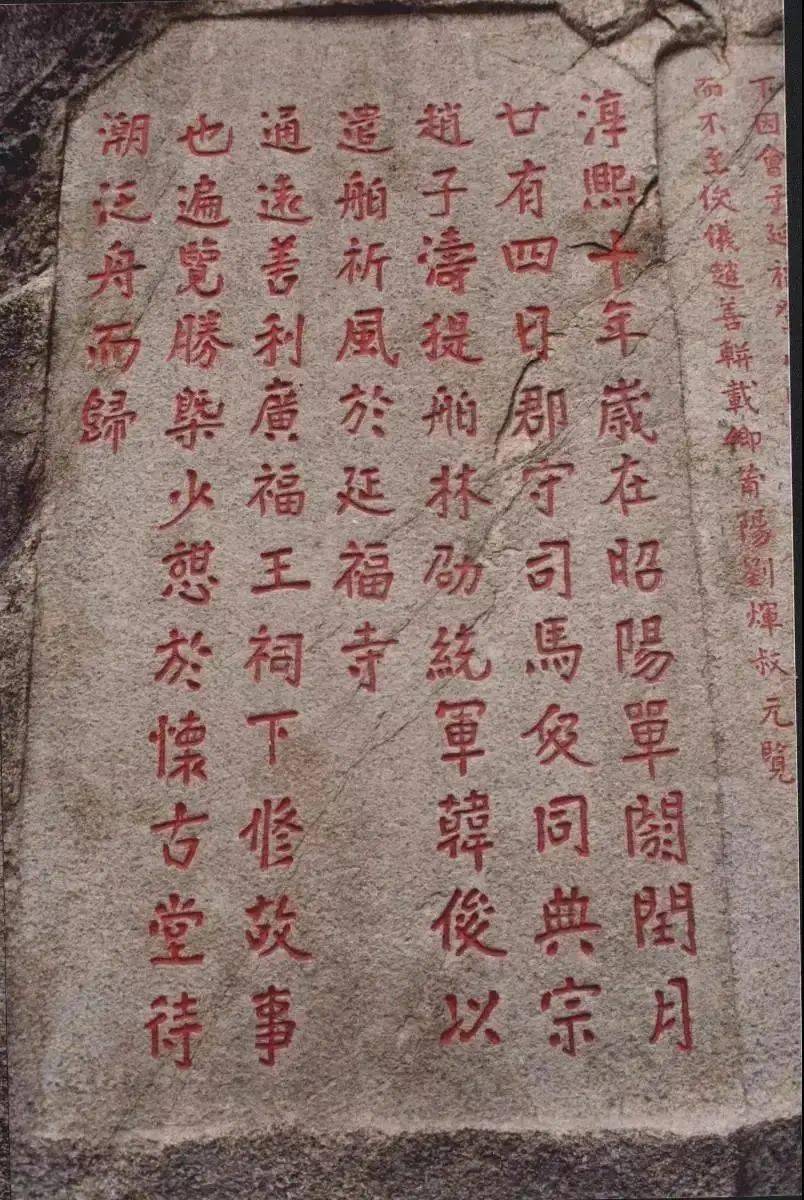 下因會于延福
而不至浚儀趙善輧載卿莆陽劉煇叔元覽
淳熙十年歲在昭陽單閼閏月
廿有四日郡守司馬伋同典宗
趙子濤提舶林劭統軍韓俊以
遣舶祈風於延福寺
通遠善利廣福王祠下修故事
也遍覽勝槩少憇於懷古堂待
潮泛舟而歸